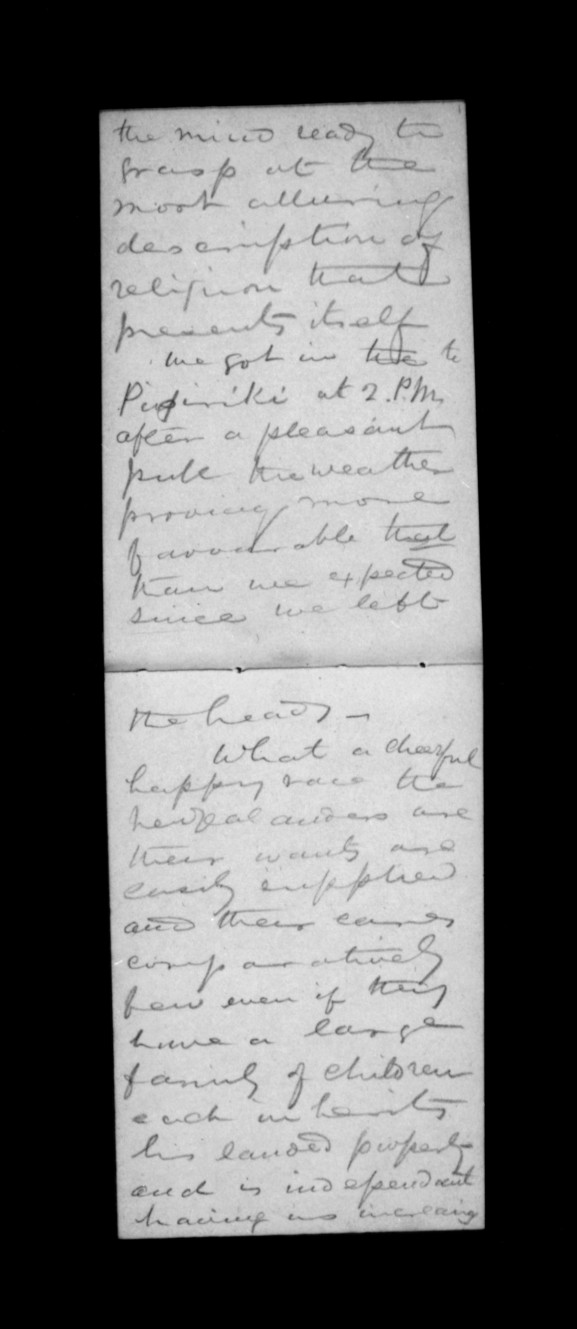 the mind ready to
grasp at the
most alluring
description of
religion that
presents itself
We got in to
Pipiriki at 2. P.M.
after a pleasant
pull the weather
proving more
favourable that
than we expected
since we left
the heads —
What a cheerful
happy race the
New Zealanders are
their wants are
easily supplied
and their cares
comparatively
few even if they
have a large
family of children
each inherits
his landed property
and is independant
having increasing